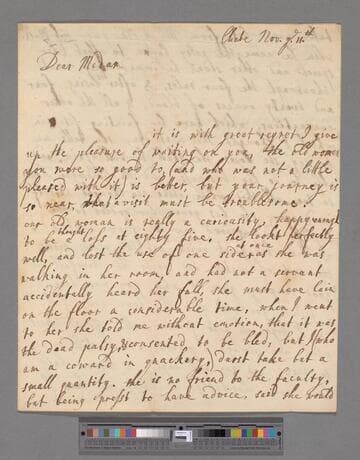 Nov. ye 11th
Dear Madam
it is with great regret I give
up the pleasure of waiting on you, the old woman
you were so good to, (and who was not a little
pleased with it) is better, but your journey is
so near, that a visit must be troublesome.
our old woman is really a curiosity, happy enough
to be thought a loss at eighty five. she lookt perfectly
well, and lost the use of one side at once as she was
walking in her room, and had not a servant
accidentally heard her fall she must have lain
on the floor a considerable time, when I went
to her she told me without emotion, that it was
the dead palsy, & consented to be bled, but I who
am a coward in quackery, durst take but a
small quantity. she is no friend to the faculty,
but being prest to have advice, said she would